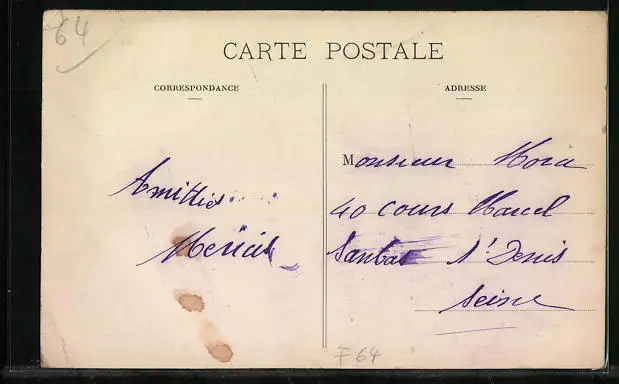 64
CARTE POSTALE
CORRESPONDANCE
ADRESSE
Amitiés
Monsieur Mora
40 cours Marcel
Sanbat St Denis
Seine
F 64